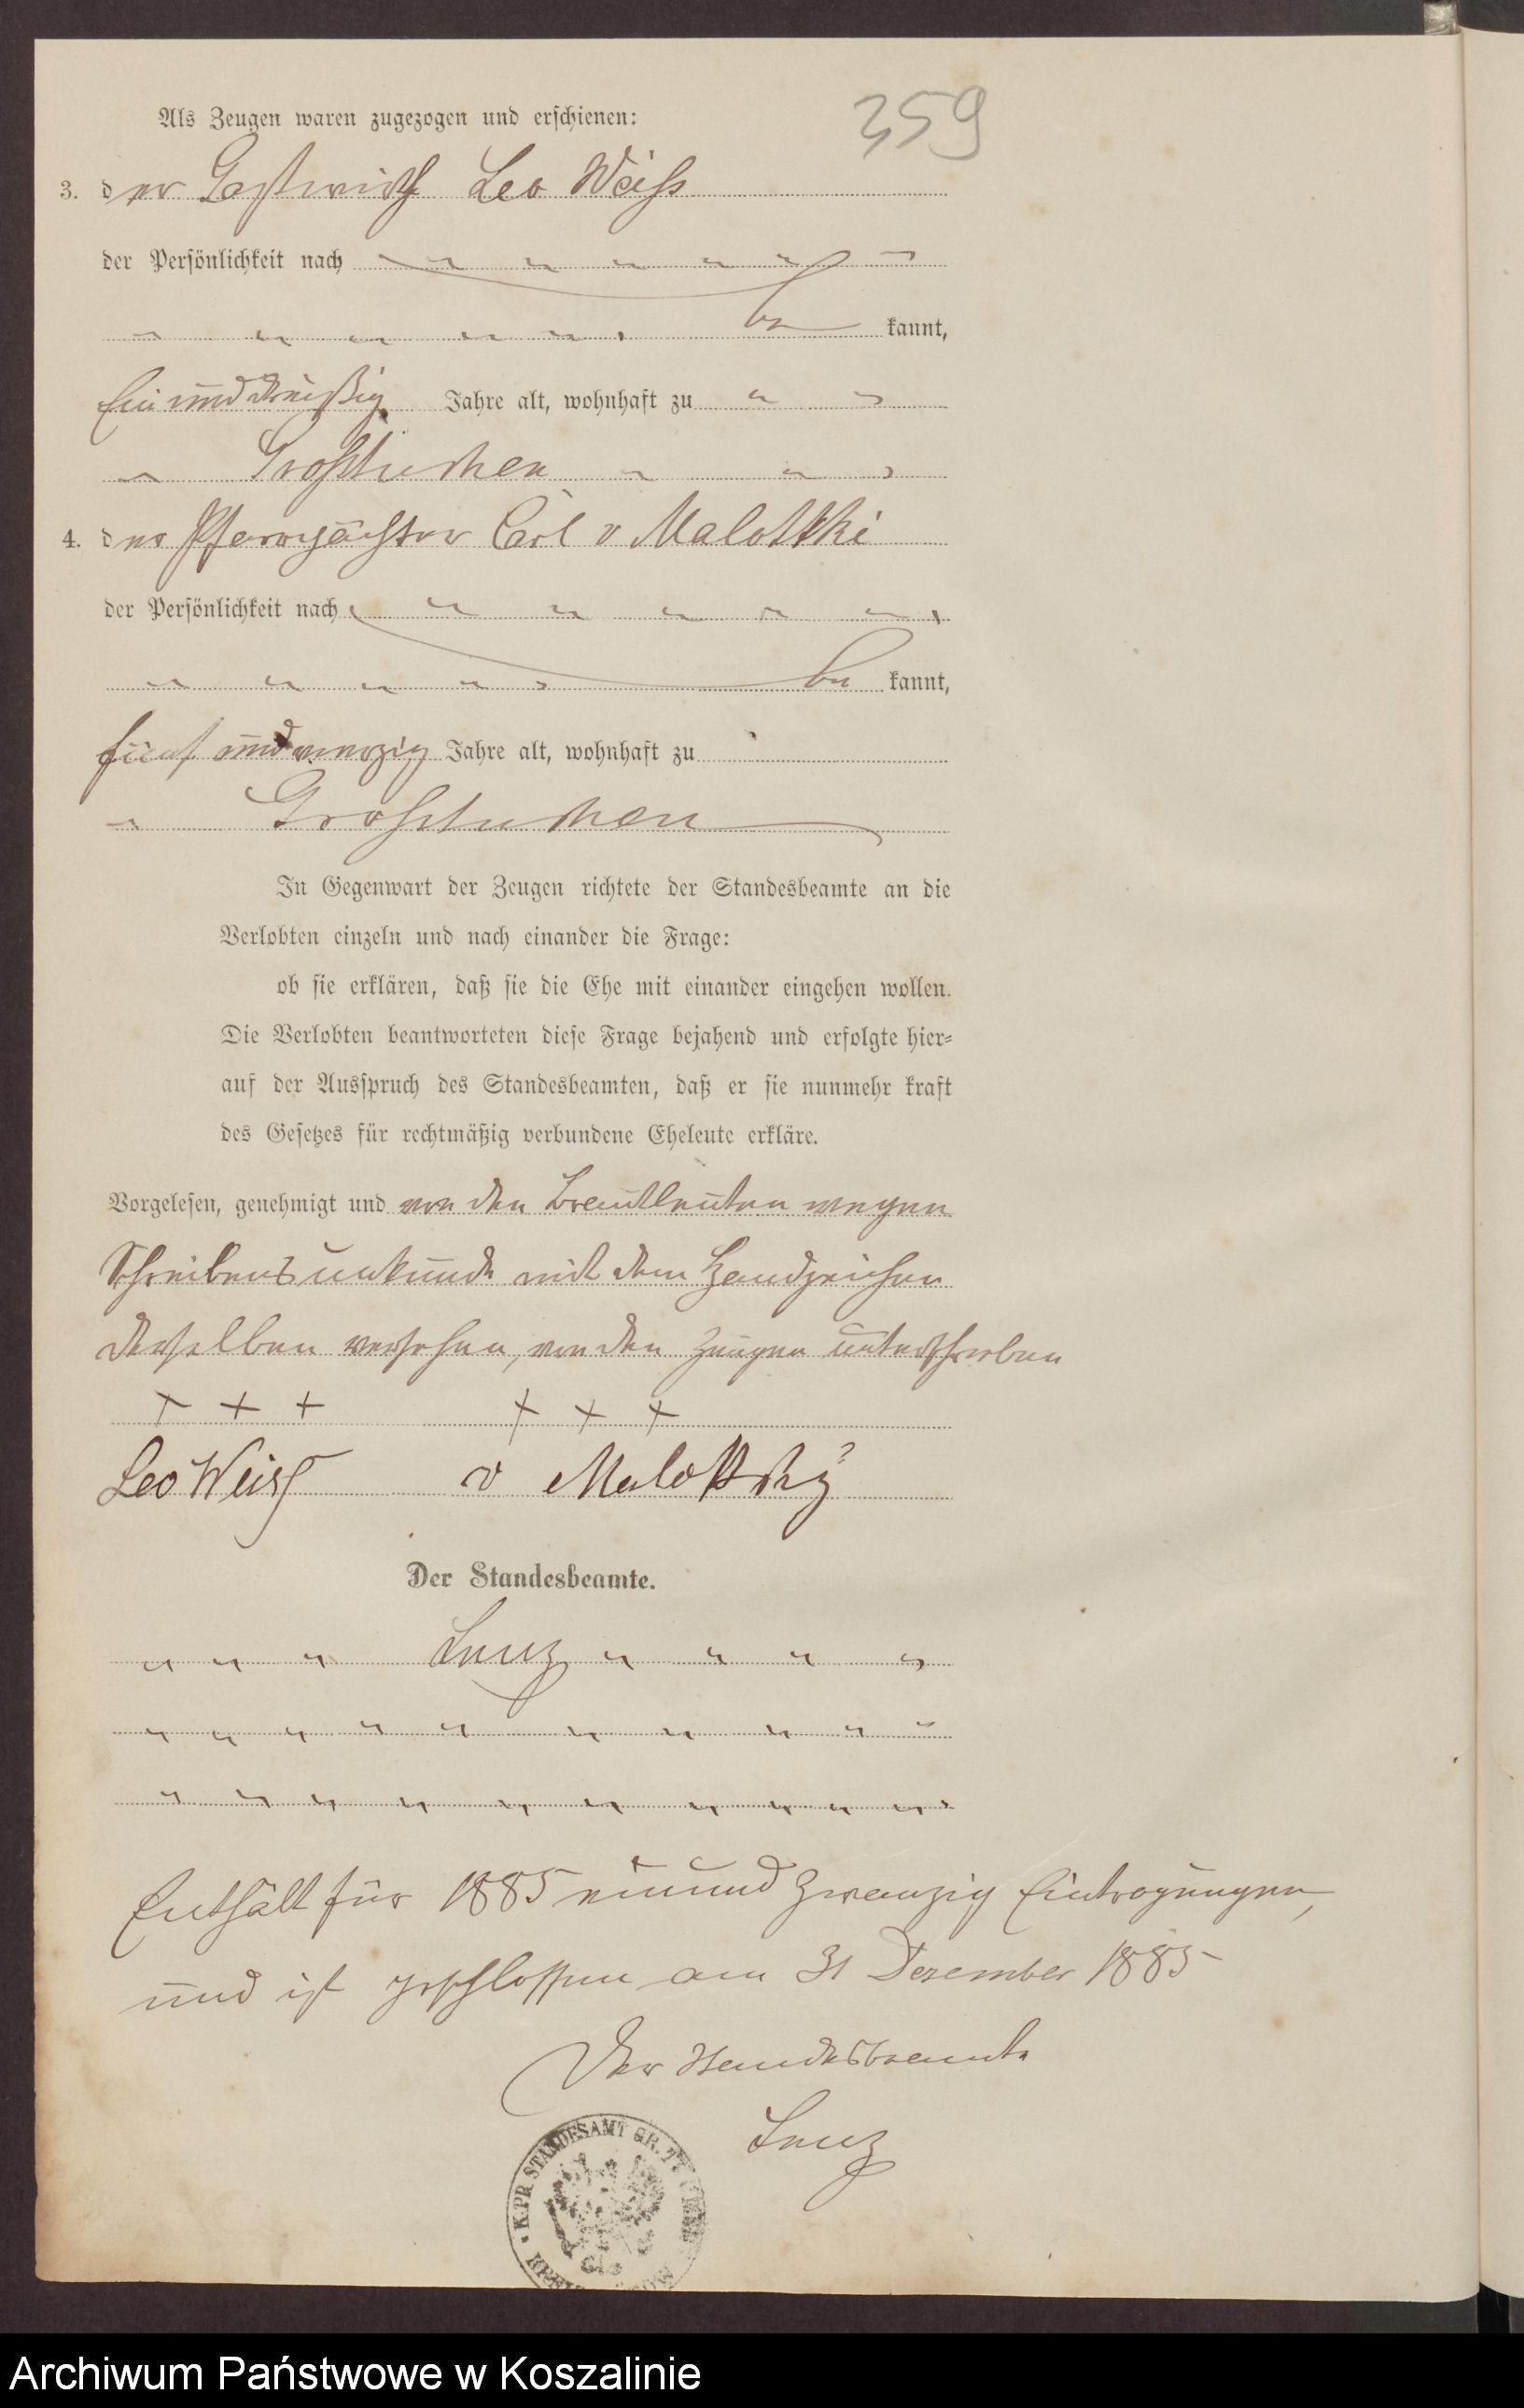 359
Als Zeugen waren zugezogen und erschienen:
3. der Gastwirth Leo Weiß
der Persönlichkeit nach
be kannt,
Ein und dreißig Jahre alt, wohnhaft zu
Großtuchen
4. der Pfarrpächter Carl v Malottki
der Persönlichkeit nach
be kannt,
fünf und vierzig Jahre alt, wohnhaft zu
Großtuchen
In Gegenwart der Zeugen richtete der Standesbeamte an die
Verlobten einzeln und nach einander die Frage:
ob sie erklären, daß sie die Ehe mit einander eingehen wollen.
Die Verlobten beantworteten diese Frage bejahend und erfolgte hier-
auf der Ausspruch des Standesbeamten, daß er sie nunmehr kraft
des Gesetzes für rechtmäßig verbundene Eheleute erkläre.
Vorgelesen, genehmigt und von den Brautleuten wegen
Schreibensunkunde mit dem Handzeichen
derselben versehen, von den Zeugen unterschrieben
+ + + + + +
Leo Weiß v Malottky
Der Standesbeamte.
Lenz
Enthält für 1885 einund zwanzig Eintragungen,
und ist geschlossen am 31 Dezember 1885
Der Standesbeamte
Lenz
K. PR. STANDESAMT GR. TUCHEN
Archiwum Państwowe w Koszalinie